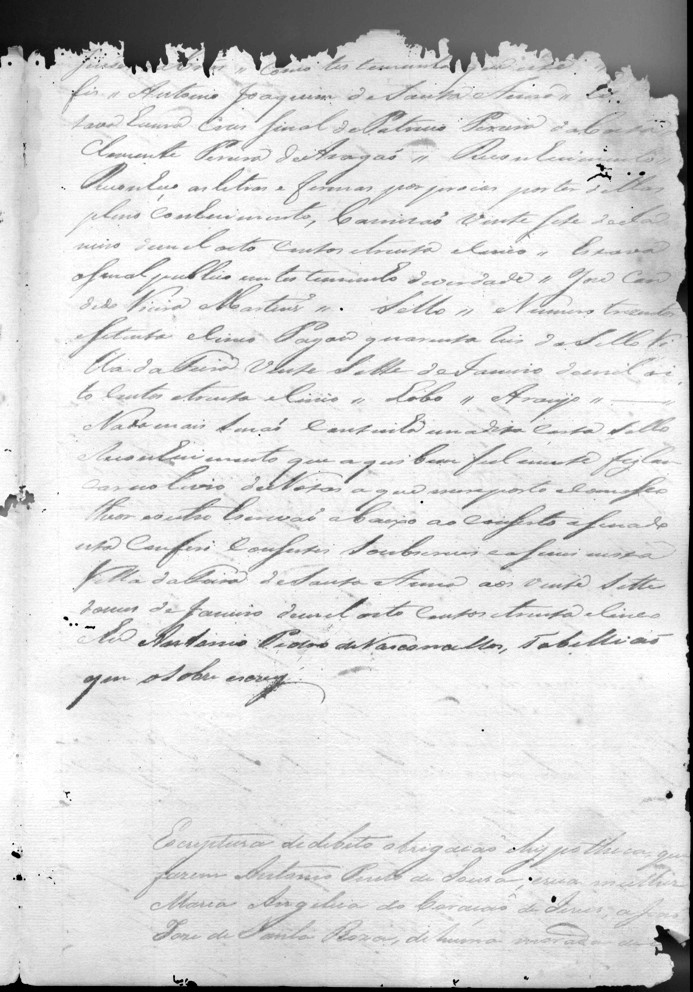 como testemunha que este
fis " Antonio Joaquim de Santa Anna "
Cruz sinal de Patricio Pereira da Costa
Clemente Pereira de Aragaõ " Reconhecimento "
Reconheço as letras e firmas por proprias por ter dellas
pleno conhecimento, Camisaõ vinte sete de Ja
neiro de mil oito centos e trinta e cinco " Estava
o sinal publico em testemunho de verdade " José Can
dido Vieira Martins " Sello " Numero trezentos
e setenta e cinco Pagou quarenta reis de Sello Vi
lla da Feira vinte Sette de Janeiro de mil oi
to centos e trinta e cinco " Lobo " Araujo "
Nada mais se naõ continha em a dita carta Sello
e reconhecimento que aqui bem fielmente fiz lan
car no livro de Notas a que me reporto e com o seu
theor e outro Escrivaõ abaixo ao conserto asinado
esta Conferi Consertei Soubscrevi e asinei nesta
Villa da Feira de Santa Anna aos vinte Sette
do mes de Janeiro de mil oito centos e trinta e cinco
Eu Antonio Pedro de Vasconcellos, Tabelliaõ
que o sobre escrevy
Escriptura de debito obrigacaõ e hypotheca que
fazem Antonio Pinto de Souza, e sua mulher
Maria Angelica do Coracaõ de Jesus, a
Jose de Santa Roza, de huma morada de